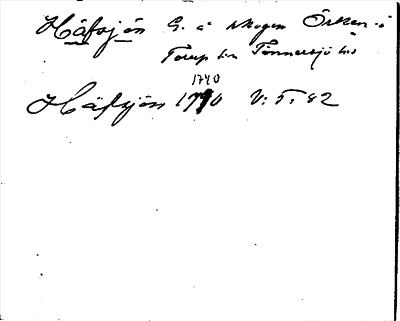 Häfsjön G. å skogen Örken i
Torup sn Tönnersjö hd
1740
Häfsjön 1740 V: 5: 82